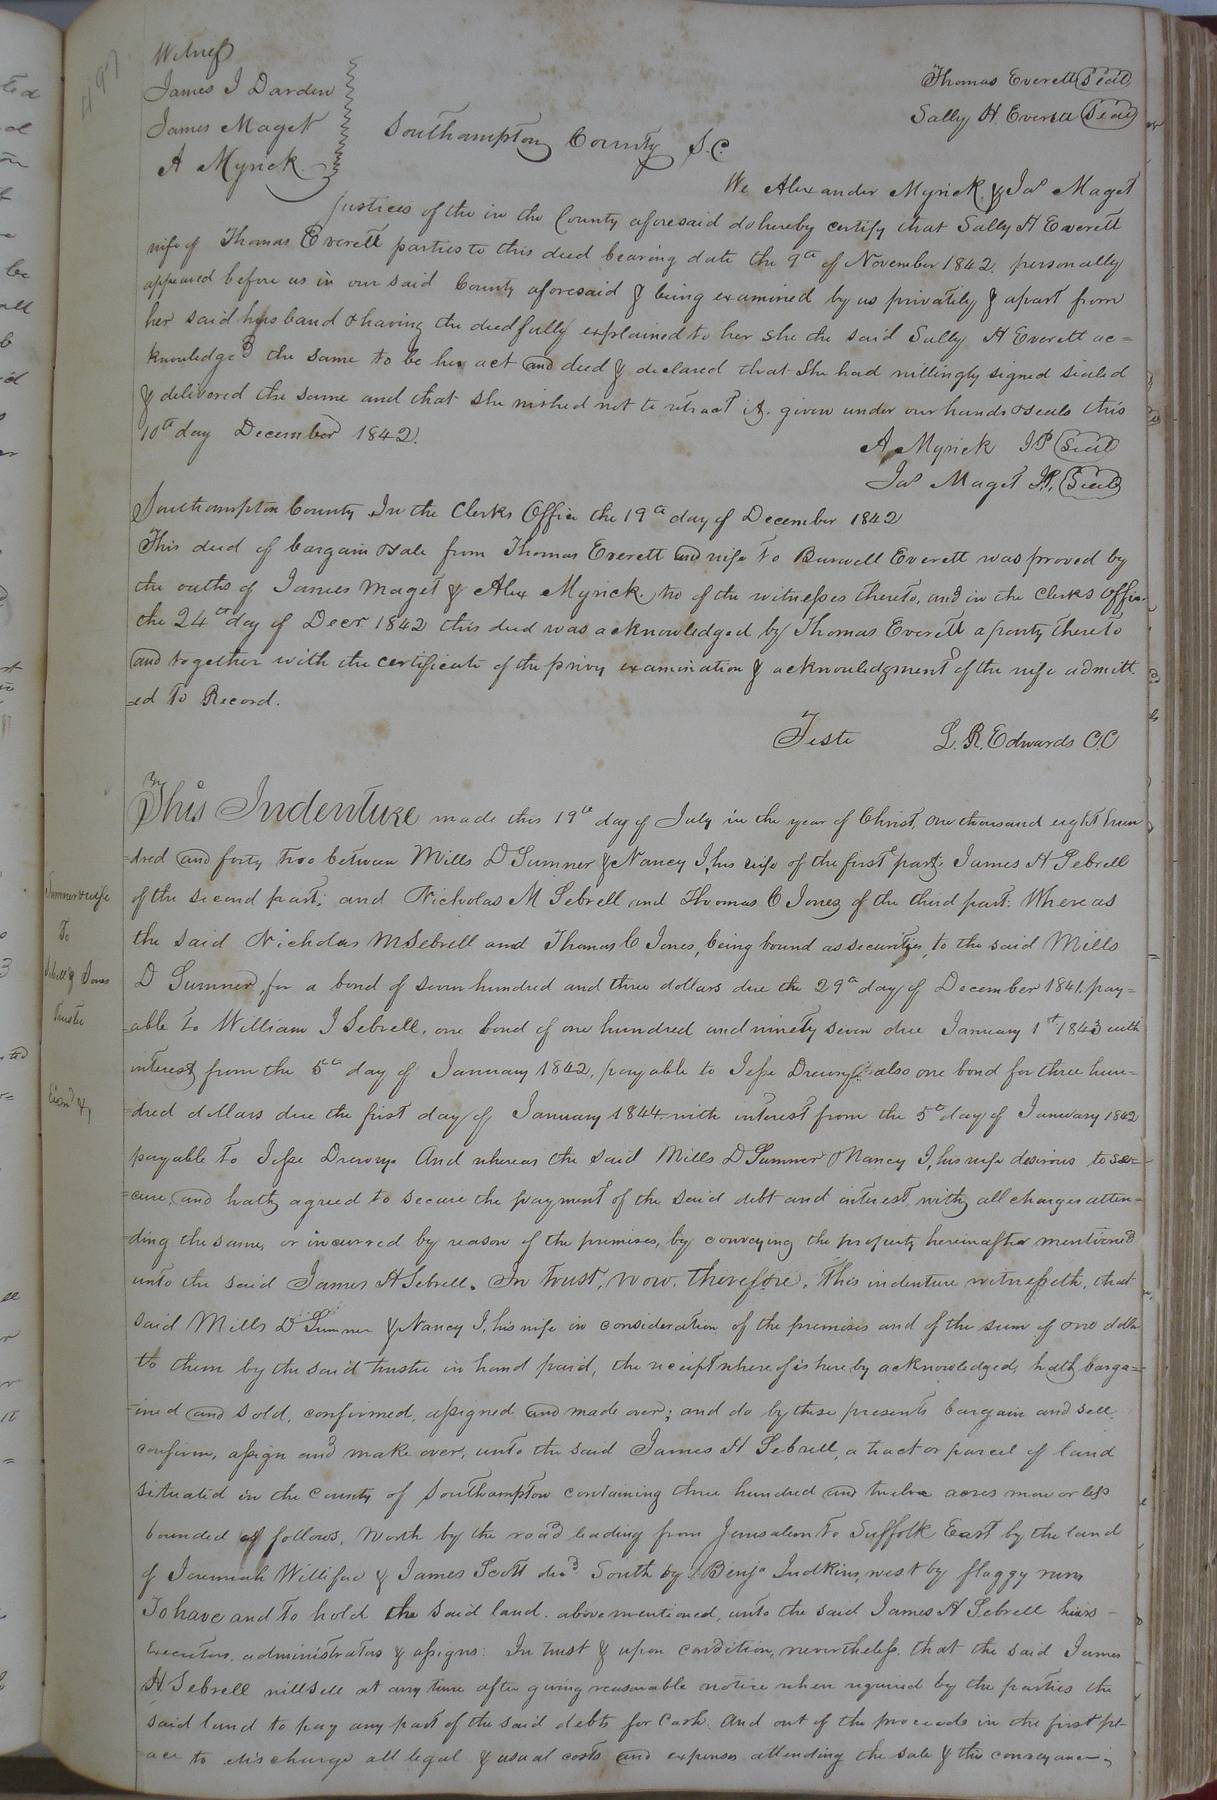 497
Witness
James J Darden
James Maget
A Myrick
Thomas Everett Seal
Sally H. Everett Seal
Southampton County S.C
We Alexander Myrick & Jas Maget
justices of the in the County aforesaid do hereby certify that Sally H Everett
wife of Thomas Everett parties to this deed bearing date the 9th of November 1842, personally
appeared before us in our said County aforesaid & being examined by us privately & apart from
her said husband & having the deed fully explained to her she the said Sally H Everett ac=
knowledged the same to be her act and deed & declared that she had willingly signed sealed
& delivered the same and that she wished not to retract it. given under our hands & seals this
10th day December 1842.
A Myrick JP Seal
Jas Maget J.P. Seal
Southampton County In the Clerks Office the 19th day of December 1842
This deed of bargain & sale from Thomas Everett and wife to Burwell Everett was proved by
the oaths of James Maget & Alex Myrick two of the witnesses thereto, and in the Clerks Office
the 24th day of Decr 1842 this deed was acknowledged by Thomas Everett a party thereto
and together with the certificate of the privy examination & acknowledgment of the wife admitt
=ed to Record.
Teste L. R. Edwards CC
This Indenture made this 19th day of July in the year of Christ, one thousand eight hun
=dred and forty two between Mills D Sumner & Nancy J, his wife of the first part, James H Sebrell
of the second part; and Nicholas M Sebrell and Thomas C Jones of the third part: Whereas
the said Nicholas M Sebrell and Thomas C Jones, being bound as securities, to the said Mills
D Sumner, for a bond of seven hundred and three dollars due the 29th day of December 1841, pay=
=able to William J Sebrell, one bond of one hundred and ninety seven due January 1st 1843 with
interest from the 5th day of January 1842, payable to Jesse Drewry also one bond for three hun=
=dred dollars due the first day of January 1844 with interest from the 5th day of January 1842
payable to Jesse Drewry. And whereas the said Mills D Sumner & Nancy J, his wife desirous to se=
=cure and hath agreed to secure the payment of the said debt and interest, with all charges atten=
=ding the same, or incurred by reason of the premises, by conveying the property hereinafter mentioned
unto the said James H Sebrell. In trust, now, therefore, This indenture witnesseth, that
said Mills D Sumner & Nancy J, his wife in consideration of the premises and of the sum of one dollar
to them by the said trustee in hand paid, the receipt whereof is hereby acknowledged, hath barga=
=ined and sold, confirmed, assigned and made over; and do by these presents bargain and sell,
confirm, assign and make over, unto the said James H Sebrell, a tract or parcel of land
situated in the County of Southampton containing three hundred and twelve acres more or less
bounded as follows, North by the road leading from Jerusalem to Suffolk East by the land
of Jeremiah Williford & James Scott decd South by Benja Judkins, west by flaggy run,
To have and to hold the said land above mentioned, unto the said James H Sebrell heirs
executors, administrators & assigns: In trust & upon condition, nevertheless, that the said James
H. Sebrell will sell at any time after giving reasonable notice when required by the parties the
said land to pay any part of the said debts for Cash. And out of the proceeds in the first pl=
ace to discharge all legal & usual costs and expenses attending the sale & the conveyance;
Sumner & wife
To
Sebrell & Jones
Trustee
Examd &